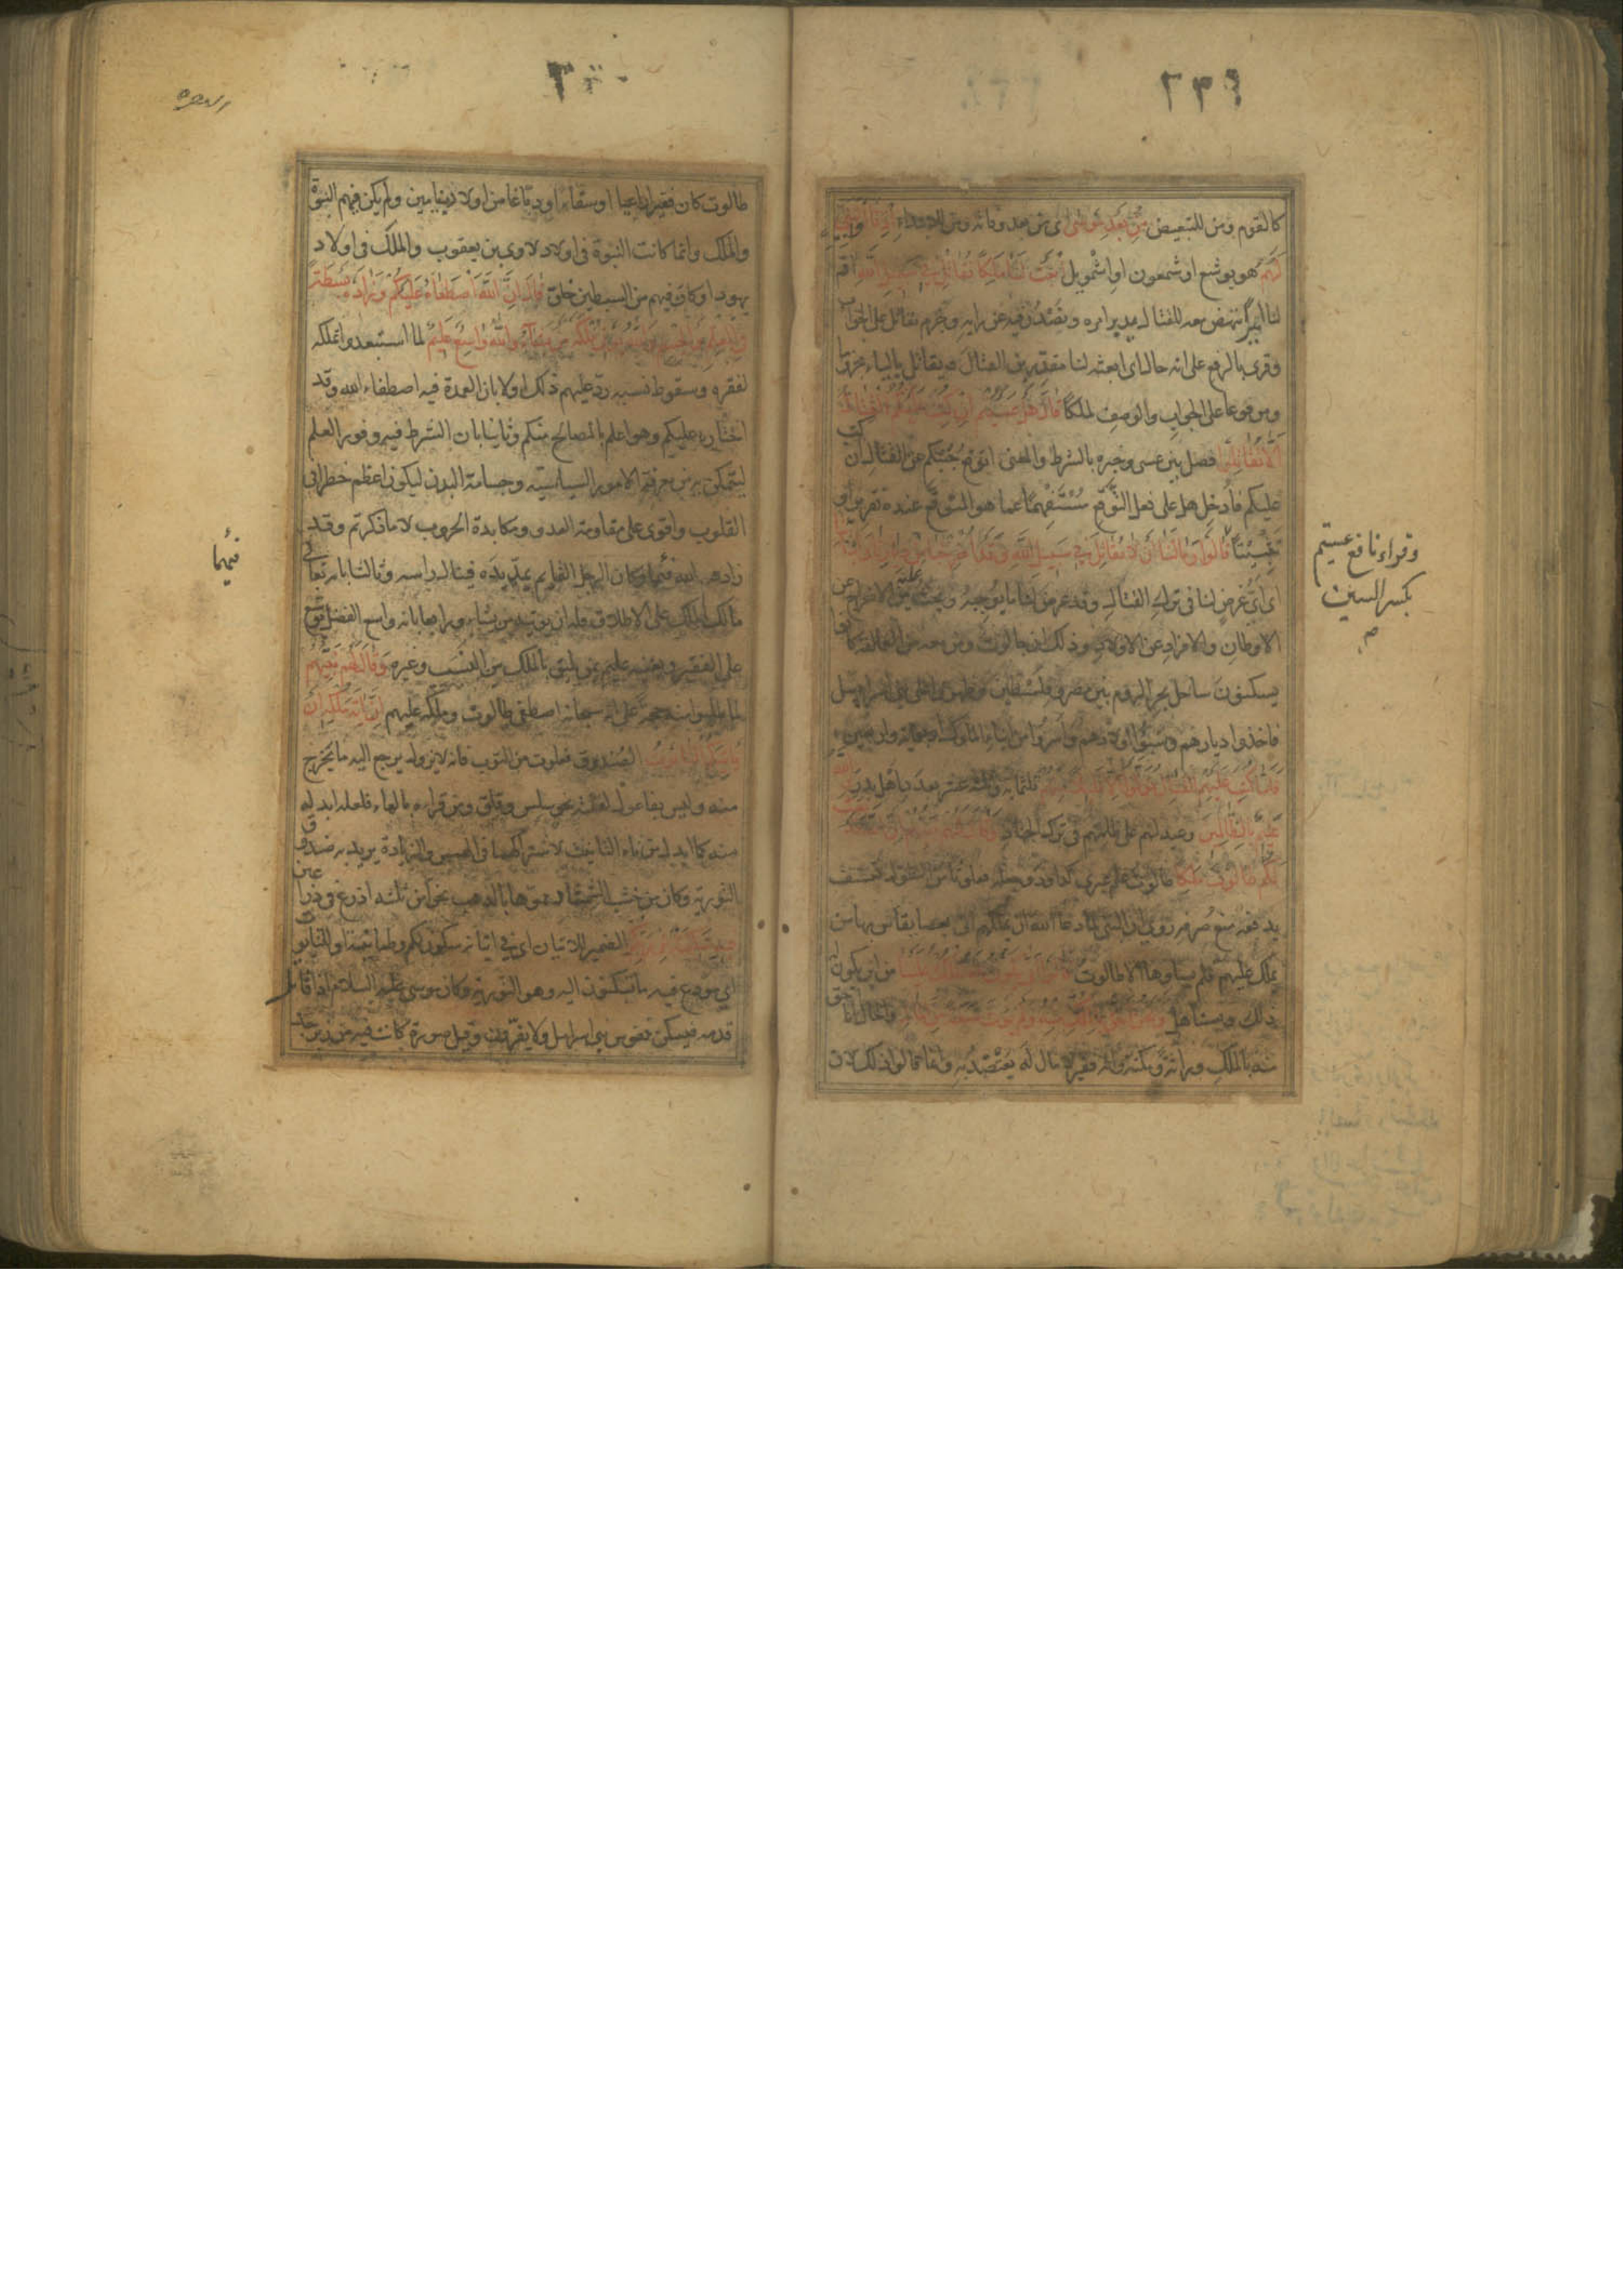 ٢٣٩
كالقوم ومن للتبعيض مِنْ بَعْدِ مُوسَى اى من بعد وفاته ومن للابتداء اِذْ قَالُوا لِنَبِيٍّ
لَهُمُ هو يوشع او شمعون او اشمويل ابْعَثْ لَنَا مَلِكًا نُقَاتِلْ فِي سَبِيلِ اللهِ اقم
لنا اميرا ننهض معه للقتال يدبر امره ونصدر فيه عن رايه وجزم نقاتل على الجواب
وقرى بالرفع على انه حال اى ابعثه لنا مقدرين القتال ويقاتل بالياء مجزوما
ومرفوعا على الجواب والوصف لملكا قَالَ هَلْ عَسَيْتُمْ اِنْ كُتِبَ عَلَيْكُمُ الْقِتَالُ
اَلَّا تُقَاتِلُوا فصل بين عسى وخبره بالشرط والمعنى اتوقع جبنكم عن القتال ان كتب
عليكم فادخل هل على فعل التوقع مستفهما عما هو المتوقع عنده تقريرا و
تثبيتا قَالُوا وَمَا لَنَا اَلَّا نُقَاتِلَ فِي سَبِيلِ اللهِ وَقَدْ اُخْرِجْنَا مِنْ دِيَارِنَا وَاَبْنَائِنَا
اى اى غرض لنا فى ترك القتال وقد عرض لنا ما يوجبه ويحث عليه من الاخراج عن
الاوطان والافراد عن الاولاد وذلك ان جالوت ومن معه من العمالقة كانوا
يسكنون ساحل بحر الروم بين مصر وفلسطين وظهروا على بنى اسرايل
فاخذوا ديارهم وسبوا اولادهم واسروا من ابناء الملوك اربعمائة واربعين
فَلَمَّا كُتِبَ عَلَيْهِمُ الْقِتَالُ تَوَلَّوْا اِلَّا قَلِيلًا مِنْهُمْ ثلثمائة وثلثة عشر بعدد اهل بدر وَاللهُ
عَلِيمٌ بِالظَّالِمِينَ وعيد لهم على ظلمهم فى ترك الجهاد وَقَالَ لَهُمْ نَبِيُّهُمْ اِنَّ اللهَ قَدْ بَعَثَ
لَكُمْ طَالُوتَ مَلِكًا طالوت علم عبرى كداود وجعله فعلوتا من الطول تعسف
يدفعه منع صرفه روى ان النبى لما دعا الله ان يملكهم اتى بعصا يقاس بها من
يملك عليهم فلم يساوها الا طالوت قَالُوا اَنَّى يَكُونُ لَهُ الْمُلْكُ عَلَيْنَا من اين يكون له
ذلك ويستاهل وَنَحْنُ اَحَقُّ بِالْمُلْكِ مِنْهُ وَلَمْ يُؤْتَ سَعَةً مِنَ الْمَالِ والحال انا احق
منه بالملك وراثة ومكنة وانه فقير لا مال له يعتضد به وانما قالوا ذلك لان
وقراء نافع عسيتم
بكسر السين
البقره
طالوت كان فقيرا راعيا او سقاء او دباغا من اولاد بنيامين ولم يكن فيهم النبوة
والملك وانما كانت النبوة فى اولاد لاوى بن يعقوب والملك فى اولاد
يهودا وكان فيهم من السبطين خلق قَالَ اِنَّ اللهَ اصْطَفَاهُ عَلَيْكُمْ وَزَادَهُ بَسْطَةً
فِي الْعِلْمِ وَالْجِسْمِ وَاللهُ يُؤْتِي مُلْكَهُ مَنْ يَشَاءُ وَاللهُ وَاسِعٌ عَلِيمٌ لما استبعدوا تملكه
لفقره وسقوط نسبه رد عليهم ذلك اولا بان العمدة فيه اصطفاء الله وقد
اختاره عليكم وهو اعلم بالمصالح منكم وثانيا بان الشرط فيه وفور العلم
ليتمكن به من معرفة الامور السياسية وجسامة البدن ليكون اعظم خطرا فى
القلوب واقوى على مقاومة العدو ومكابدة الحروب لا ما ذكرتم وقد
زاده الله فيهما وكان الرجل القايم يمد يده فينال راسه وثالثا بانه تعالى
مالك الملك على الاطلاق فله ان يؤتيه من يشاء ورابعا بانه واسع الفضل يوسع
على الفقير ويغنيه عليم بمن يليق بالملك من النسيب وغيره وَقَالَ لَهُمْ نَبِيُّهُمْ
لما طلبوا منه حجة على انه سبحانه اصطفى طالوت وملكه عليهم اِنَّ آيَةَ مُلْكِهِ اَنْ
يَأْتِيَكُمُ التَّابُوتُ الصندوق فعلوت من التوب فانه لا يزال يرجع اليه ما يخرج
منه وليس بفاعول لقلة نحو سلس وقلق ومن قراءه بالهاء فلعله ابدله
منه كما ابدل من تاء التانيث لاشتراكهما فى الهمس والزيادة يريد به صندوق
التورية وكان من خشب الشمشاد مموها بالذهب نحوا من ثلثه اذرع فى ذراعين
فِيهِ سَكِينَةٌ مِنْ رَبِّكُمْ الضمير للاتيان اى فى اتيانه سكون لكم وطمانينة او للتابوت
اى مودع فيه ما تسكنون اليه وهو التورية وكان موسى عليه السلام اذا قاتل
قدمه فيسكن نفوس بنى اسرايل ولا يفرون وقيل صورة كانت فيه من زبرجد
فيهما